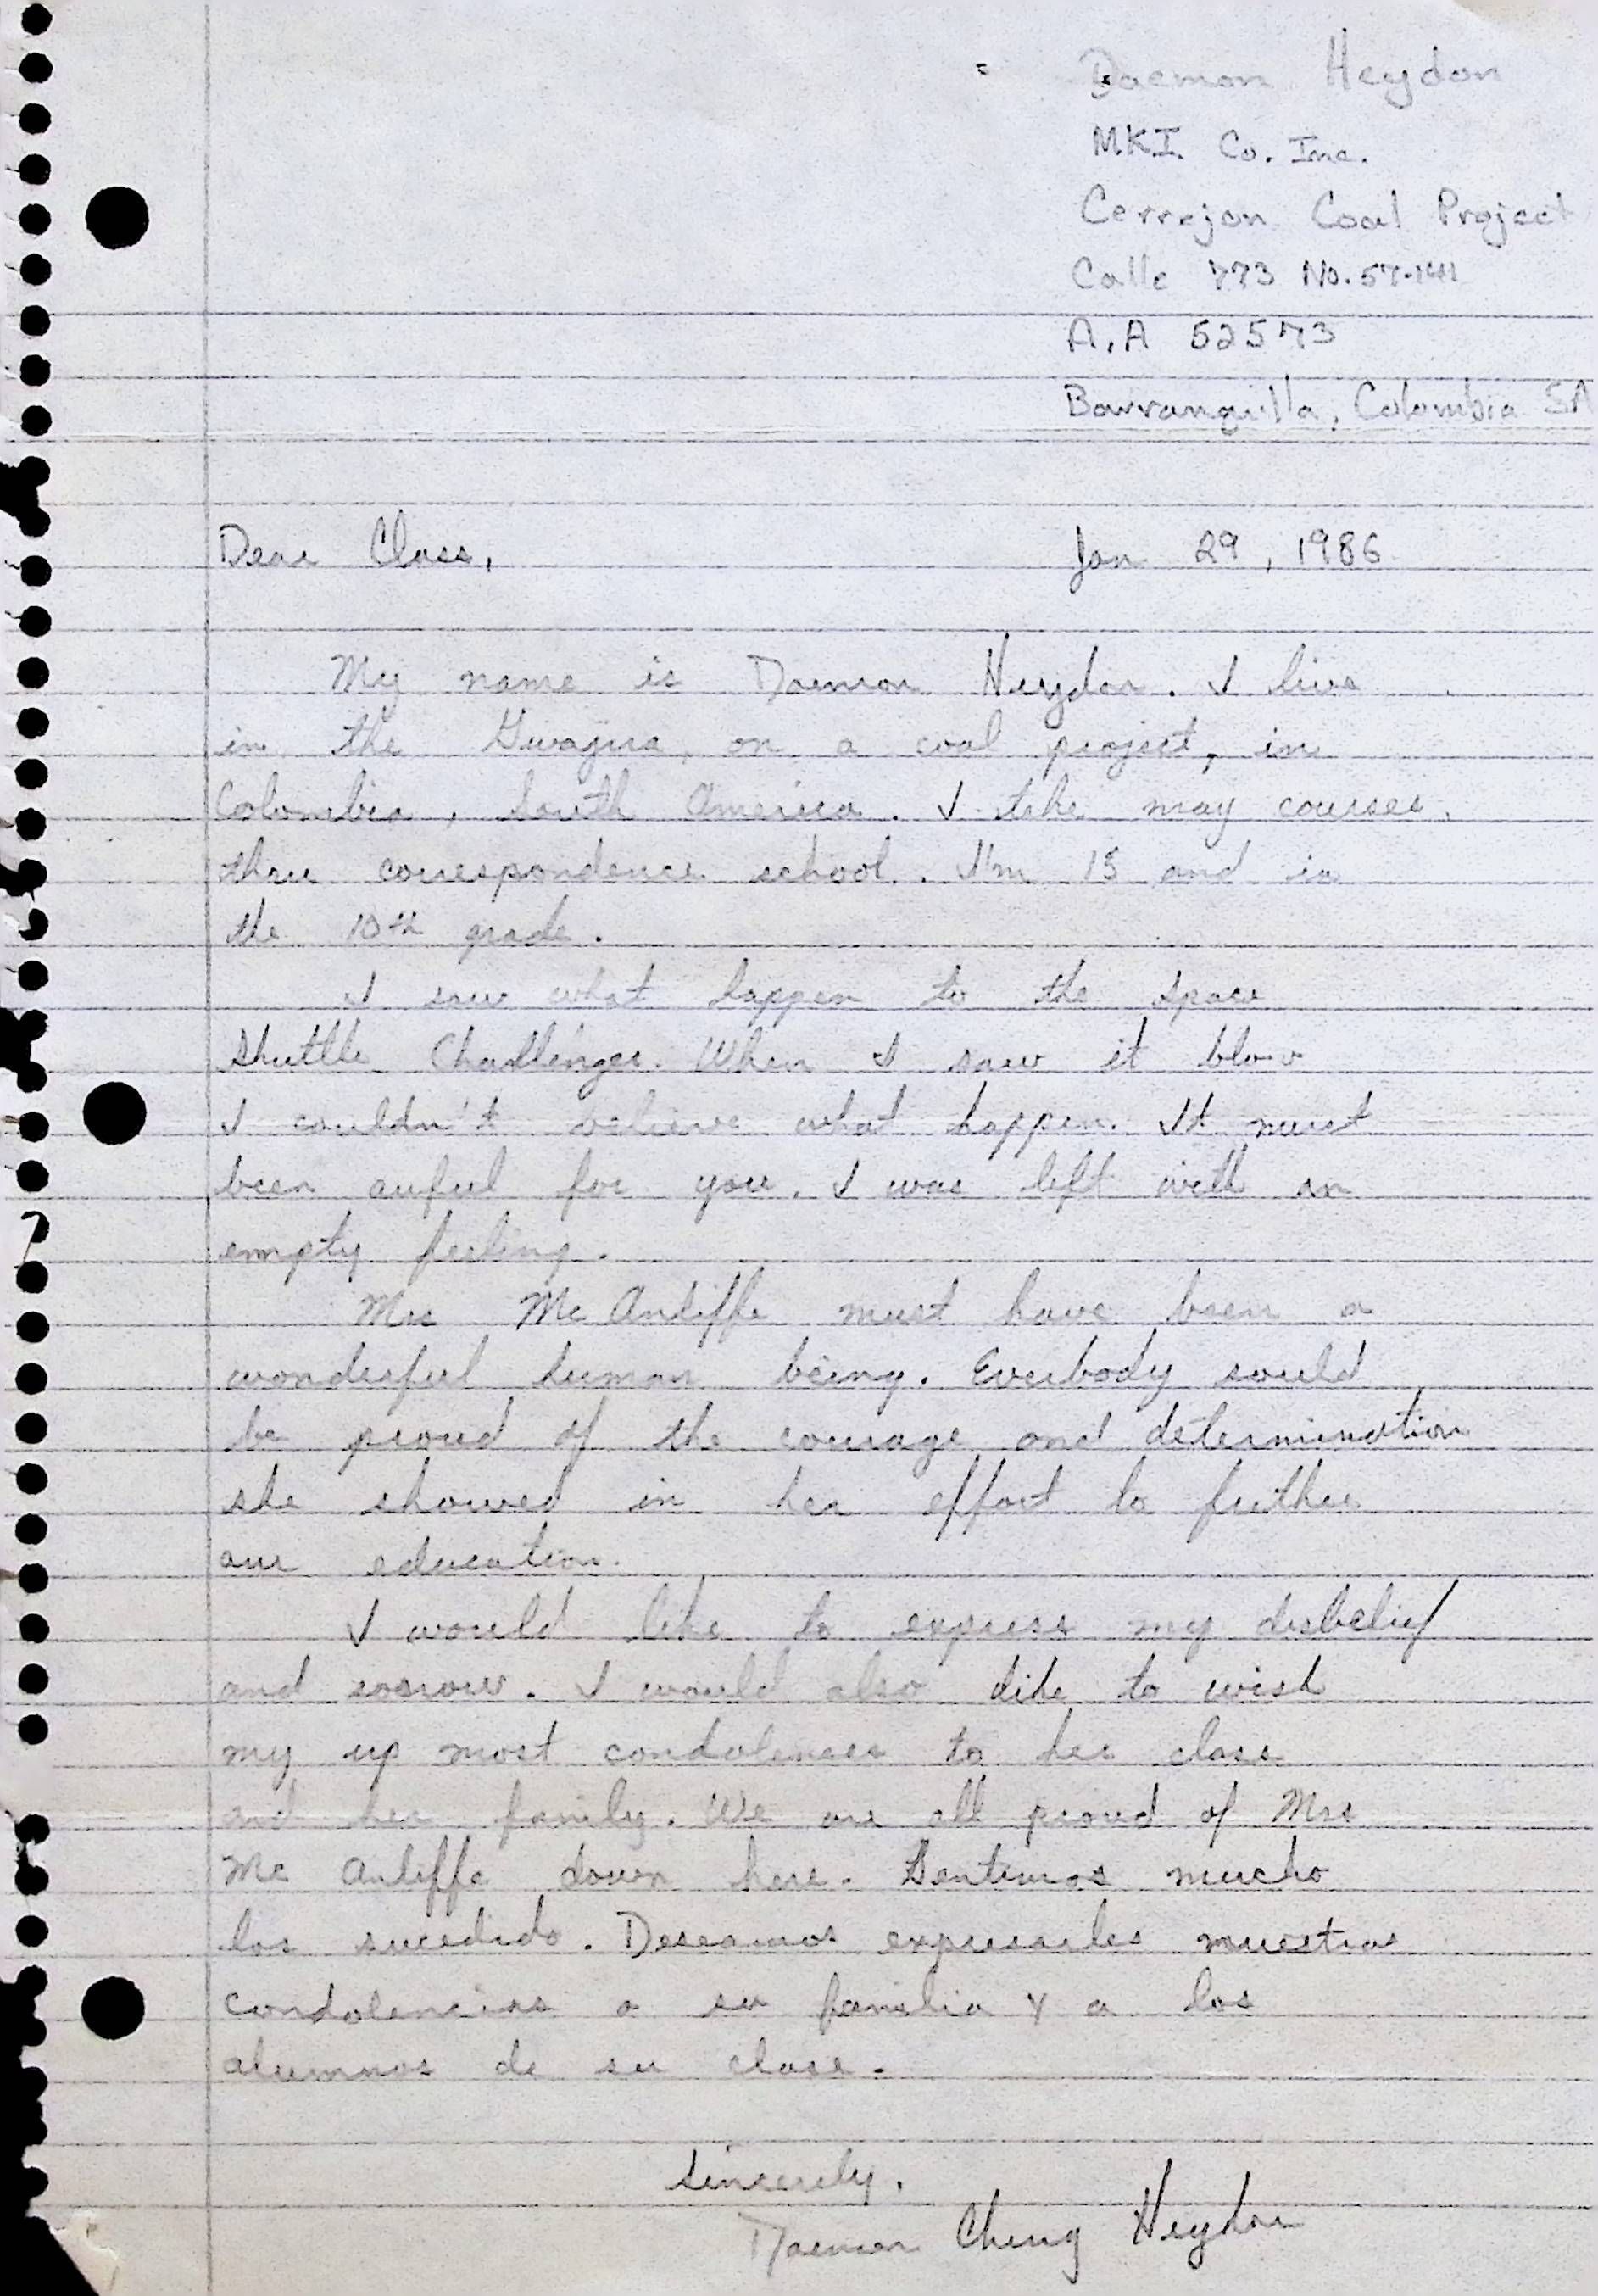 Daemon Heydon
M.K.I. Co. Inc.
Cerrejon Coal Project
Calle 773 No. 57-141
A.A 52573
Barranquilla, Colombia SA
Dear Class, Jan 29, 1986
My name is Daemon Heydon. I live
in the Guajira, on a coal project, in
Colombia, South America. I take may courses
thru correspondence school. I'm 15 and in
the 10th grade.
I saw what happen to the space
shuttle Challenger. When I saw it blow
I couldn't believe what happen. It must
been auful for you. I was left with an
empty feeling.
Mrs Mc Auliffe must have been a
wonderful human being. Everbody sould
be proud of the courage and determination
she showed in her effort to futher
our education.
I would like to express my disbelief
and sorrow. I would also like to wish
my up most condolences to her class
and her family. We are all proud of Mrs
Mc Auliffe down here. Sentimos mucho
los sucedido. Deseamos expresarles muestras
condolencias a su familia y a los
alumnos de su clase.
Sincerely,
Daemon Cheng Heydon